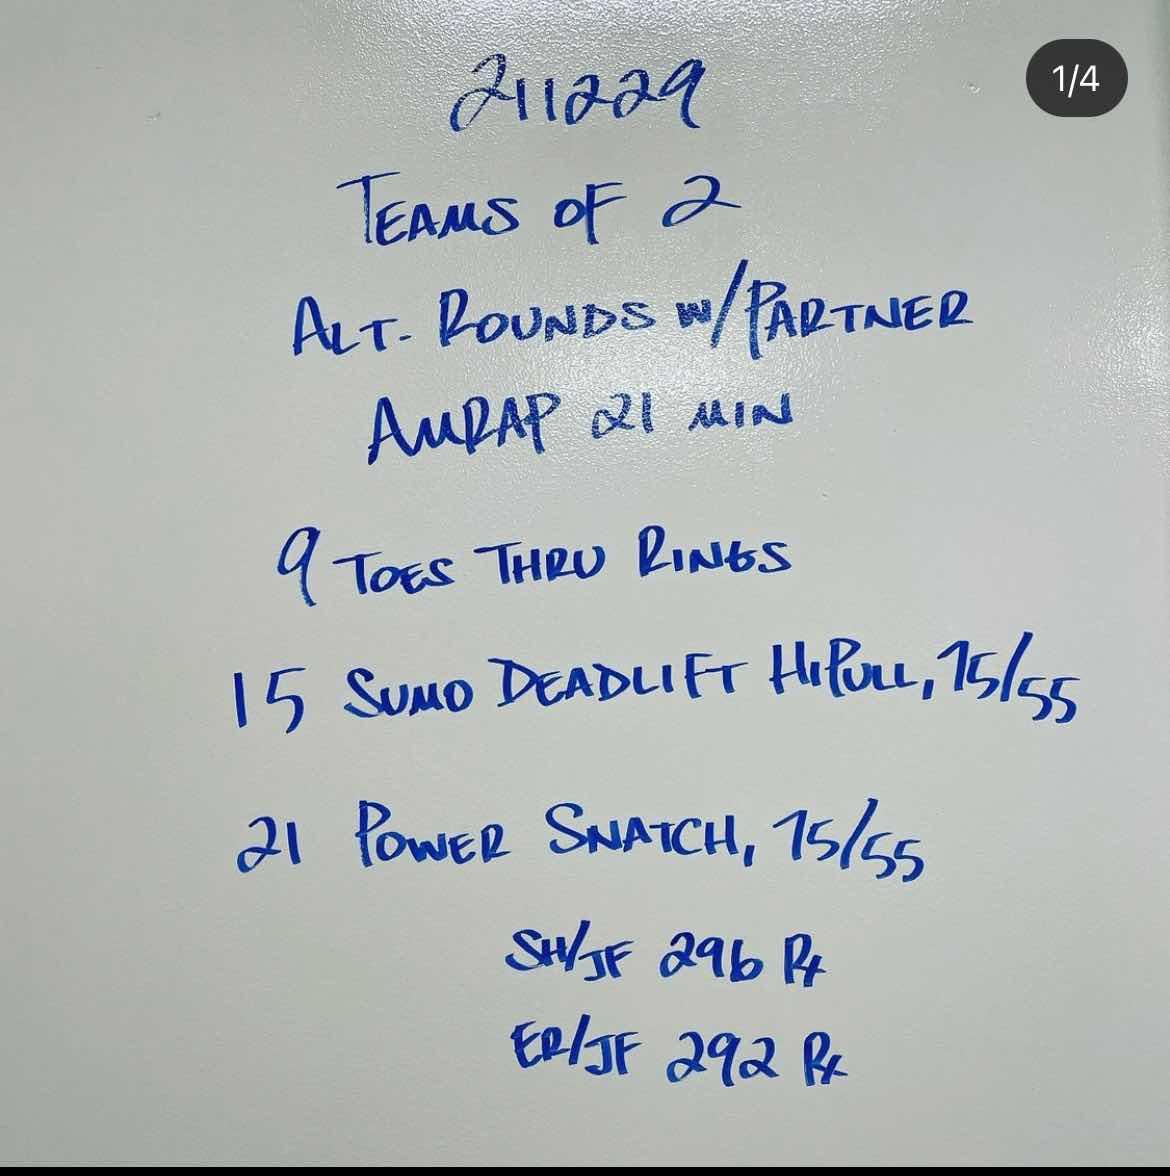 1/4
211229
TEAMS OF 2
ALT. ROUNDS W/PARTNER
AMRAP 21 MIN
9 TOES THRU RINGS
15 SUMO DEADLIFT HIPULL, 75/55
21 POWER SNATCH, 75/55
SH/JF 296 Rx
ER/JF 292 Rx